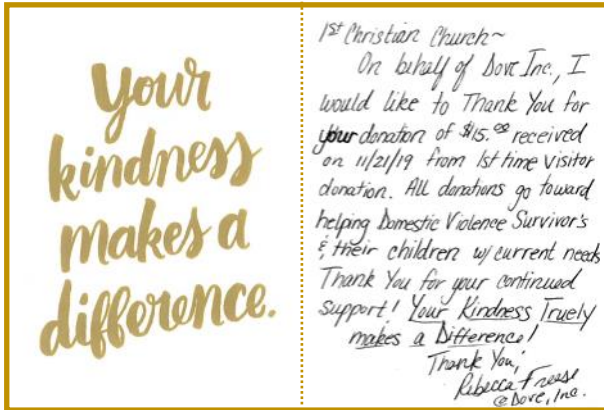 your
kindness
makes a
difference.
1st Christian Church~
On behalf of Dove Inc., I
would like to Thank You for
your donation of $15.00 received
on 11/21/19 from 1st time visitor
donation. All donations go toward
helping Domestic Violence Survivor's
& their children w/ current needs
Thank You for your continued
support! Your Kindness Truely
makes a Difference!
Thank You,
Rebecca Freese
@ Dove, Inc.